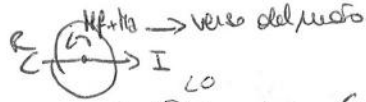 Mf+Ma → verso del moto
R
C → I
<0